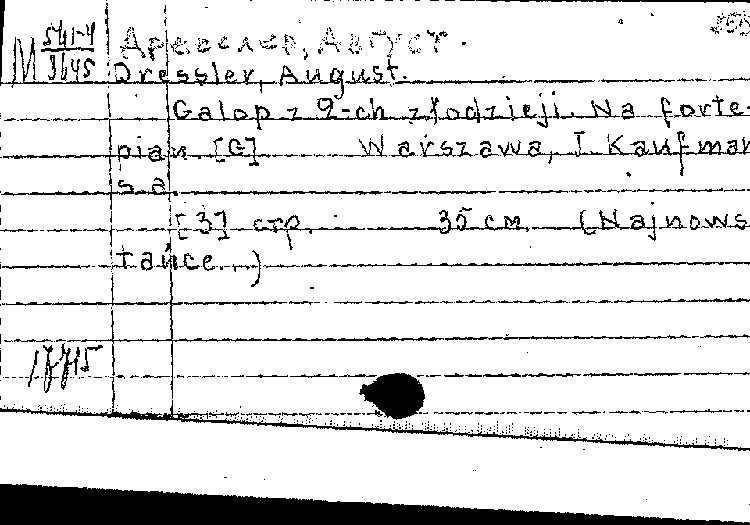 М 541-4 Дресслер, Август.
3645 Dressler, August.
Galop z 2-ch złodzieji. Na forte-
pian. [G] Warszawa, J. Kaufman
s.a.
[3] стр. 35 см. (Najnows
tańce...)